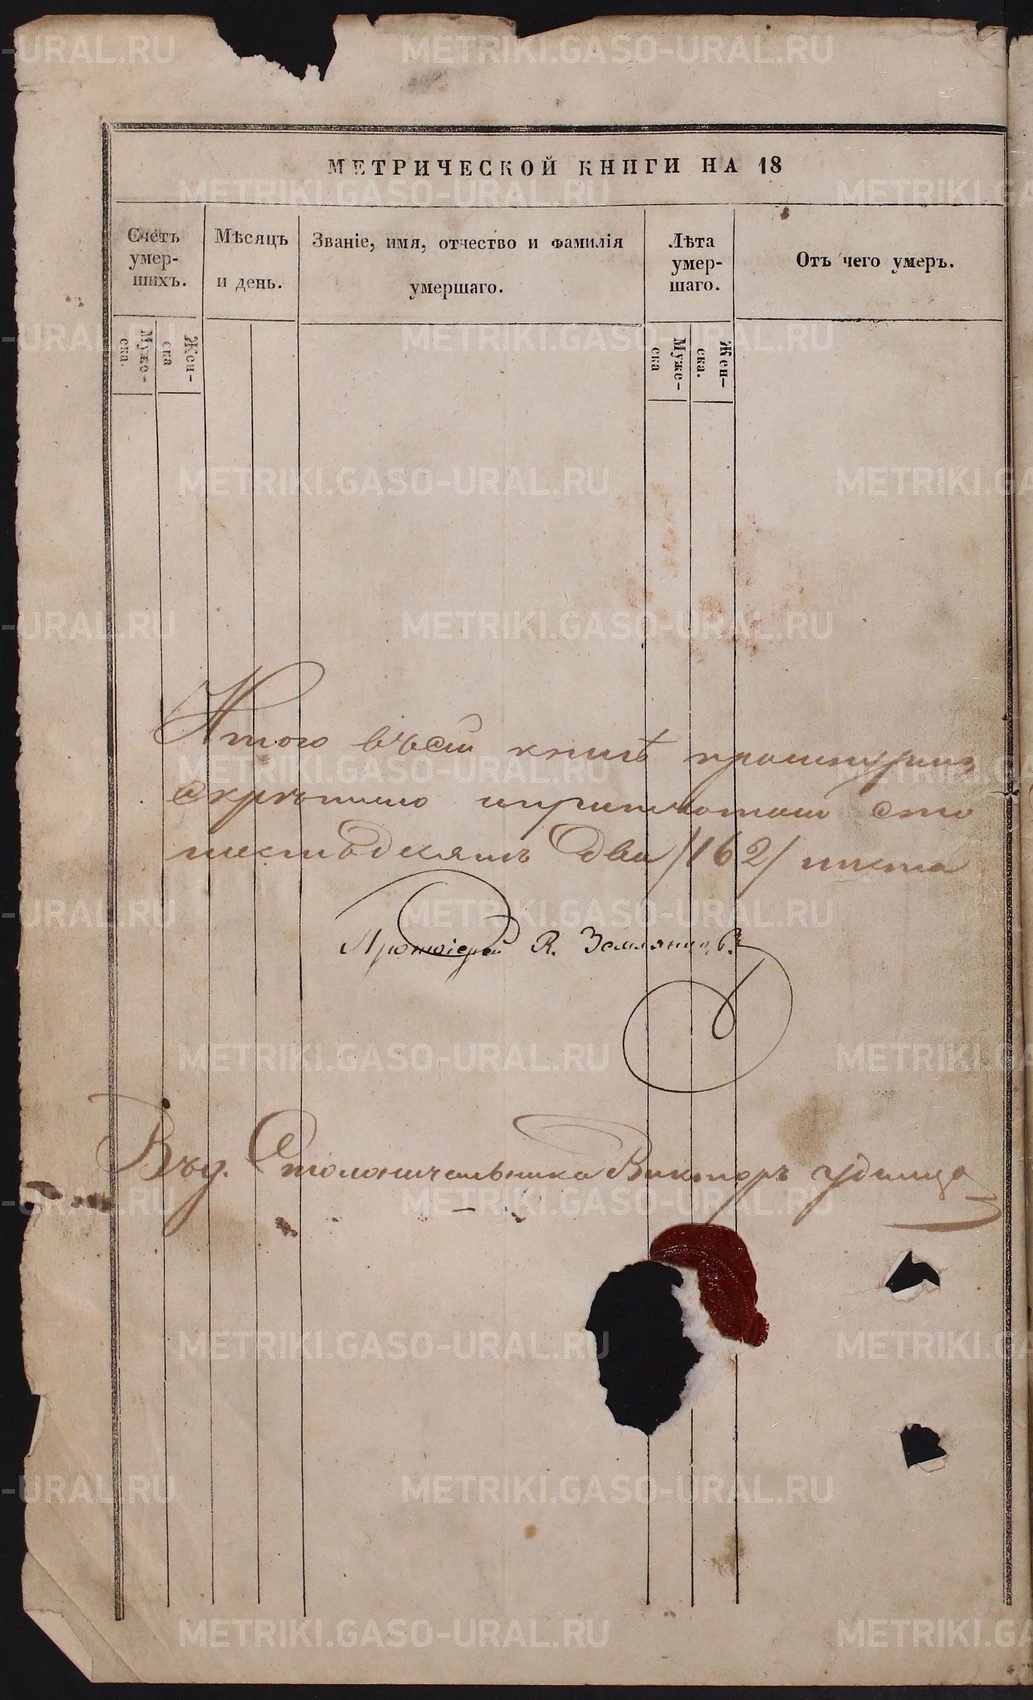 МЕТРИЧЕСКОЙ КНИГИ НА 18
Счетъ умер-шихъ.
Мѣсяцъ и день.
Званіе, имя, отчество и фамилія умершаго.
Лѣта умер-шаго.
Отъ чего умеръ.
Муже-ска.
Жен-ска
Муже-ска
Жен-ска.
Итого въ сей книгѣ прошнурин
скрѣплено и припечатано сто
шестьдесятъ два /162/ листа
Протоіерей К. Земляницынъ
Вид. Столоначальника Викторъ Удинцо
METRIKI.GASO-URAL.RU